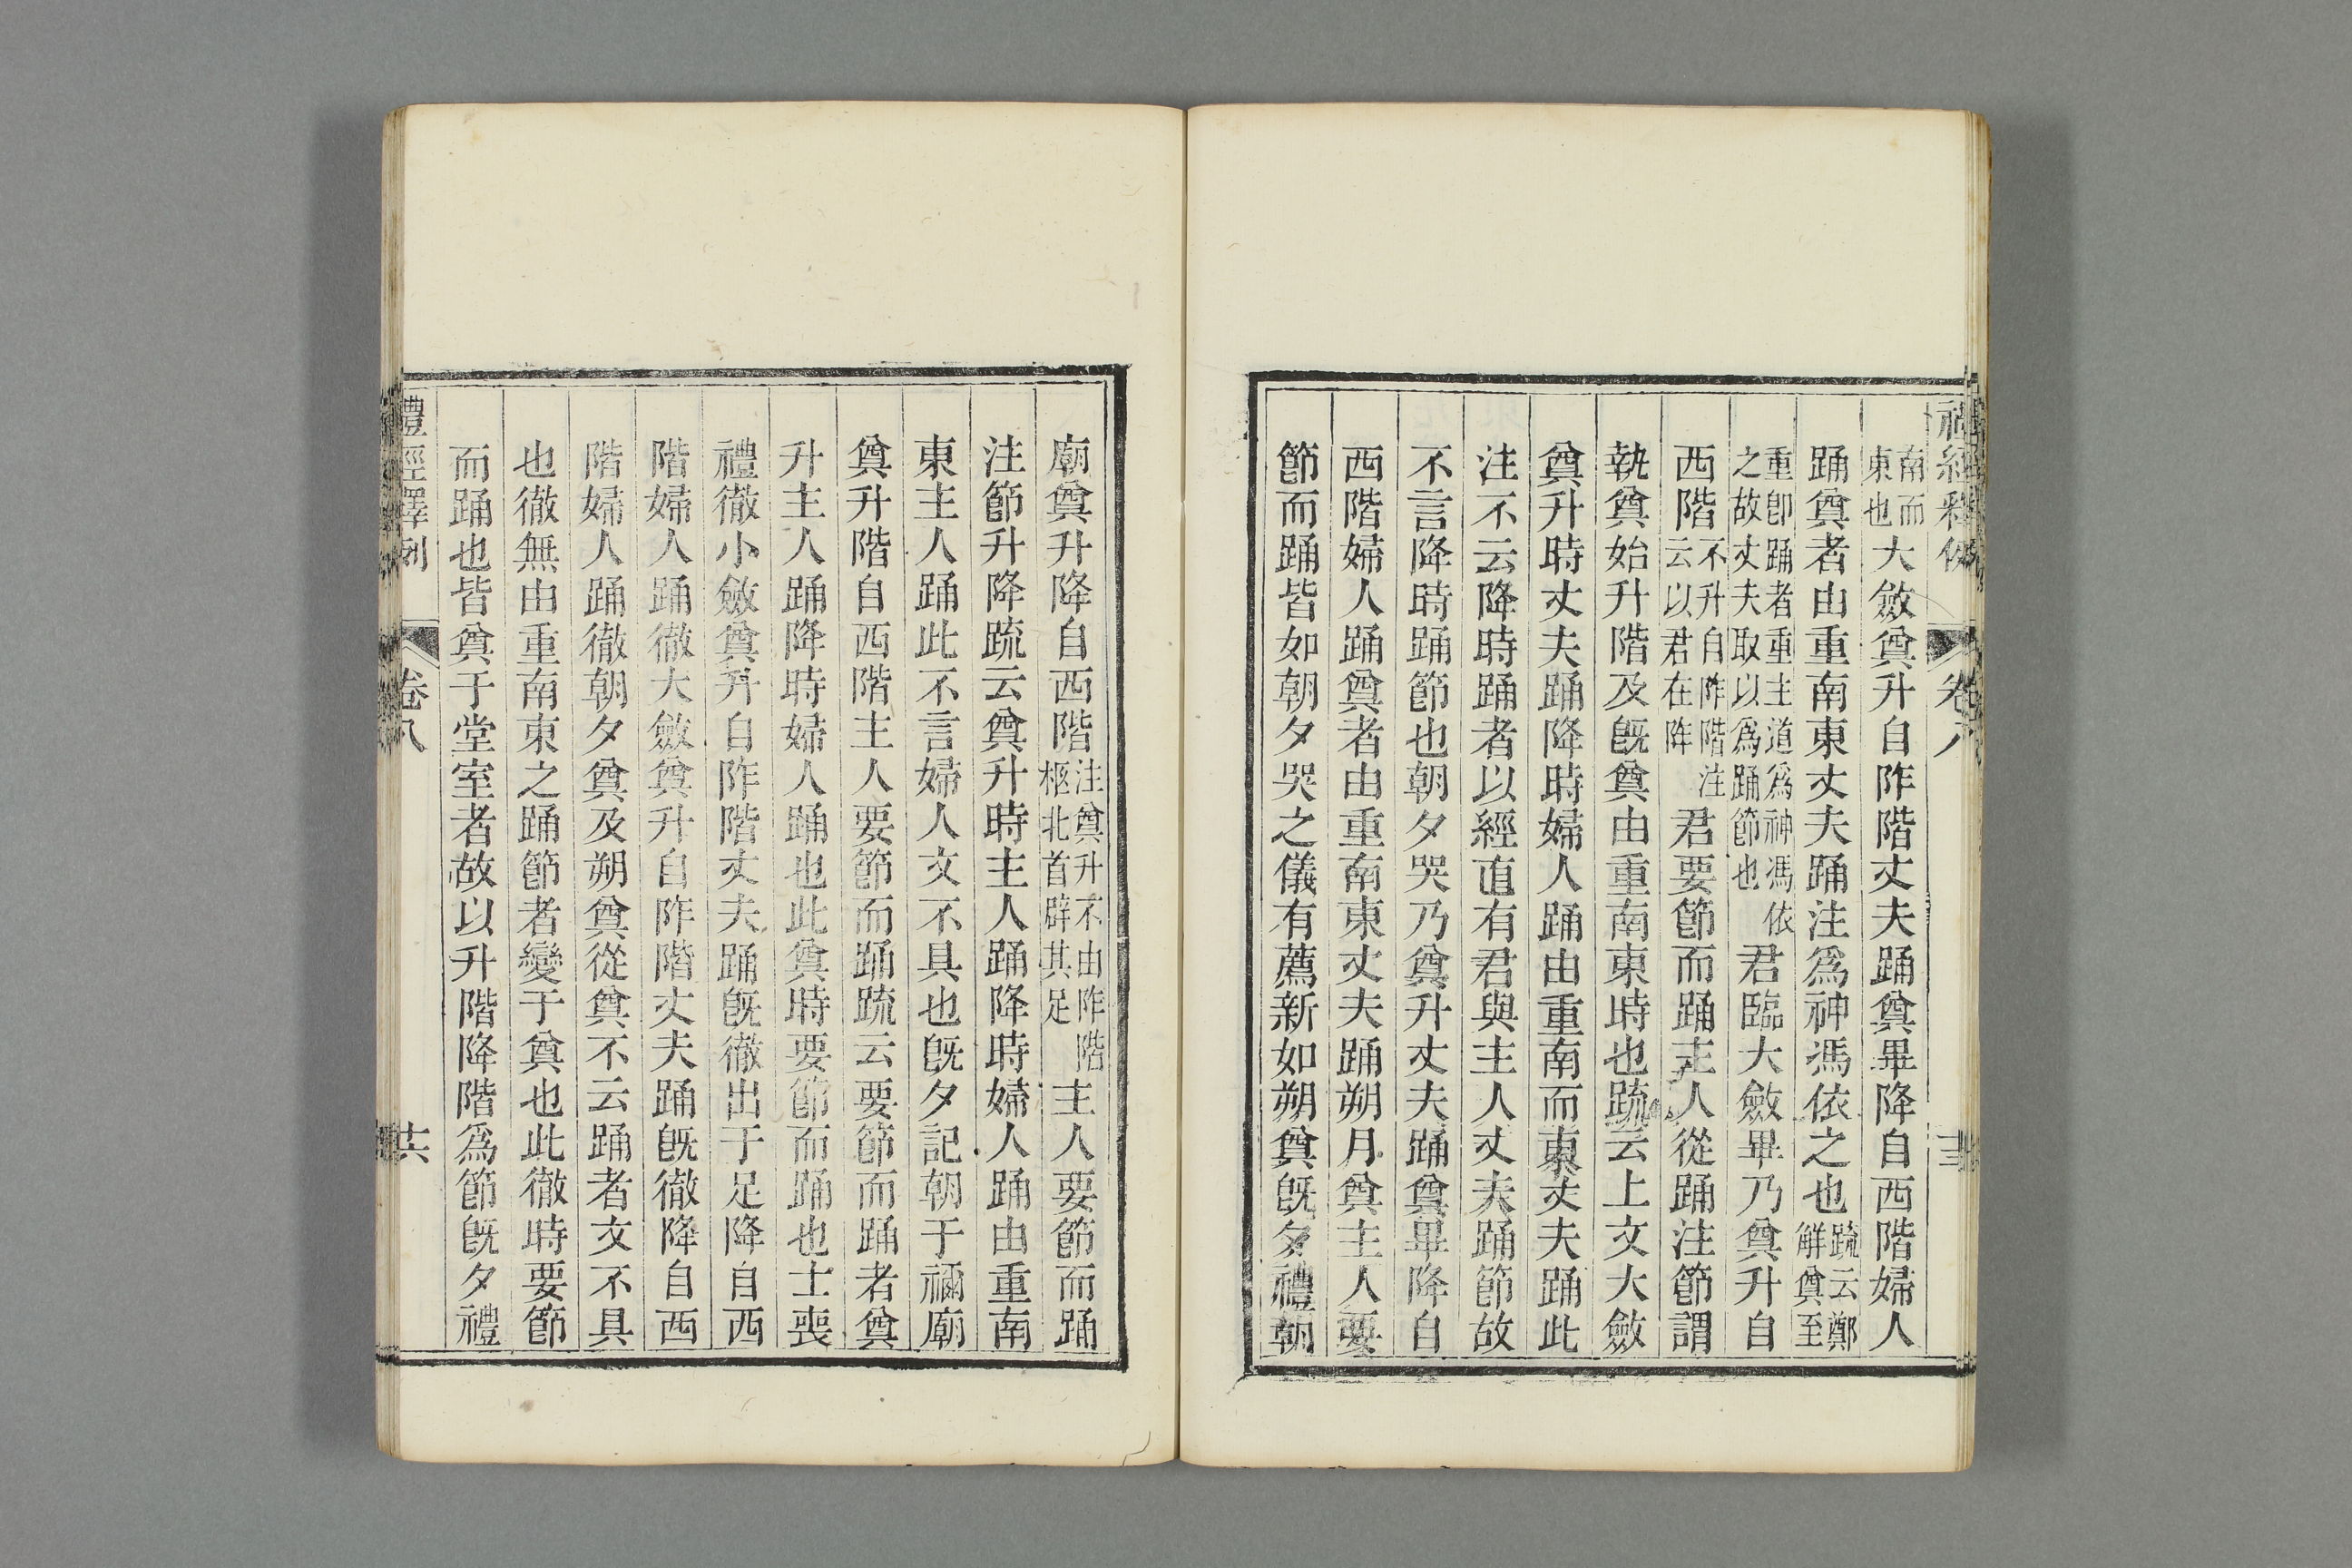 禮經釋例 卷八
南而東也大斂奠升自阼階丈夫踊奠畢降自西階婦人
踊奠者由重南東丈夫踊注爲神馮依之也疏云鄭解奠至
重卽踊者重主道爲神馮依之故丈夫取以爲踊節也君臨大斂畢乃奠升自
西階不升自阼階注云以君在阼君要節而踊主人從踊注節謂
執奠始升階及旣奠由重南東時也疏云上文大斂
奠升時丈夫踊降時婦人踊由重南而東丈夫踊此
注不云降時踊者以經直有君與主人丈夫踊節故
不言降時踊節也朝夕哭乃奠升丈夫踊奠畢降自
西階婦人踊奠者由重南東丈夫踊朔月奠主人要
節而踊皆如朝夕哭之儀有薦新如朔奠旣夕禮朝
廟奠升降自西階注奠升不由阼階柩北首辟其足主人要節而踊
注節升降疏云奠升時主人踊降時婦人踊由重南
東主人踊此不言婦人文不具也旣夕記朝于禰廟
奠升階自西階主人要節而踊疏云要節而踊者奠
升主人踊降時婦人踊也此奠時要節而踊也士喪
禮徹小斂奠升自阼階丈夫踊旣徹出于足降自西
階婦人踊徹大斂奠升自阼階丈夫踊旣徹降自西
階婦人踊徹朝夕奠及朔奠從奠不云踊者文不具
也徹無由重南東之踊節者變于奠也此徹時要節
而踊也皆奠于堂室者故以升階降階爲節旣夕禮
禮經釋例 卷八 十六